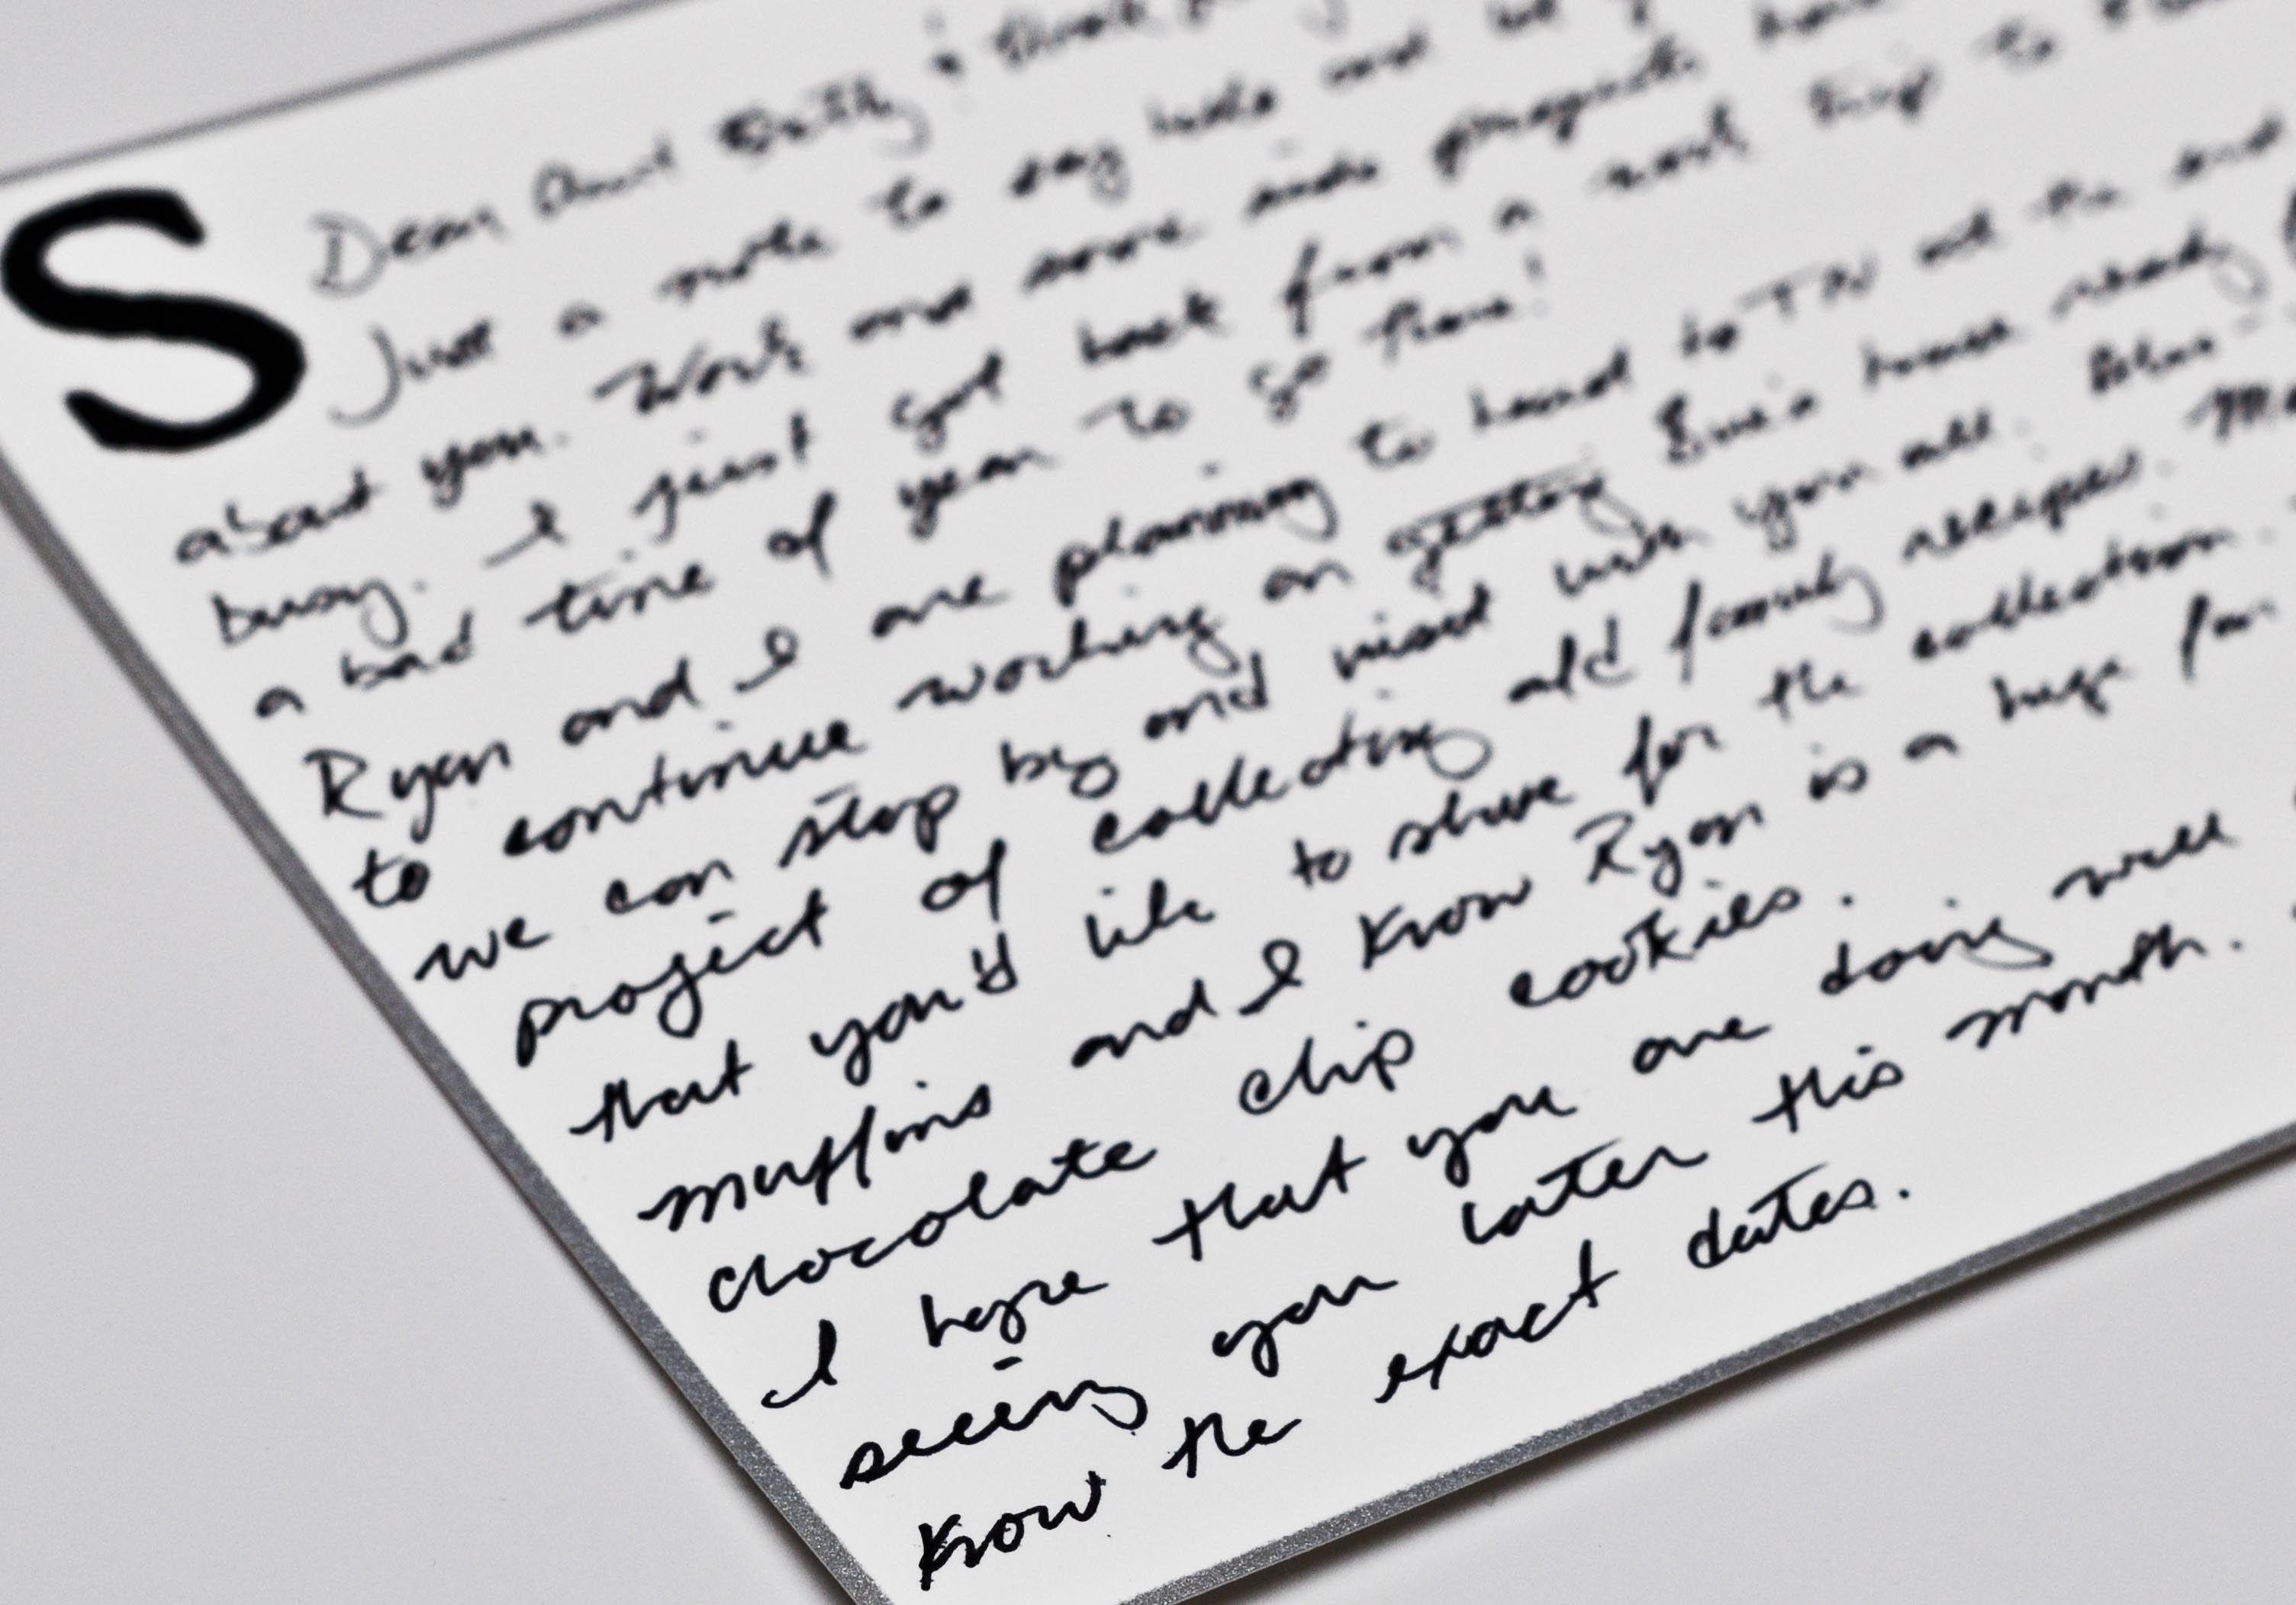 S
Dear Aunt Betty
Just a note to say hello and let
about you. Work and some side projects have
busy. I just got back from a work trip to
a bad time of year to go there!
Ryan and I are planning to head to TN at the end
to continue working on getting house ready
we can stop by and visit with you all.
project of collecting old family recipes.
that you'd like to share for the collection.
muffins and I know Ryan is a huge fan
chocolate chip cookies.
I hope that you are doing well
seeing you later this month.
know the exact dates.